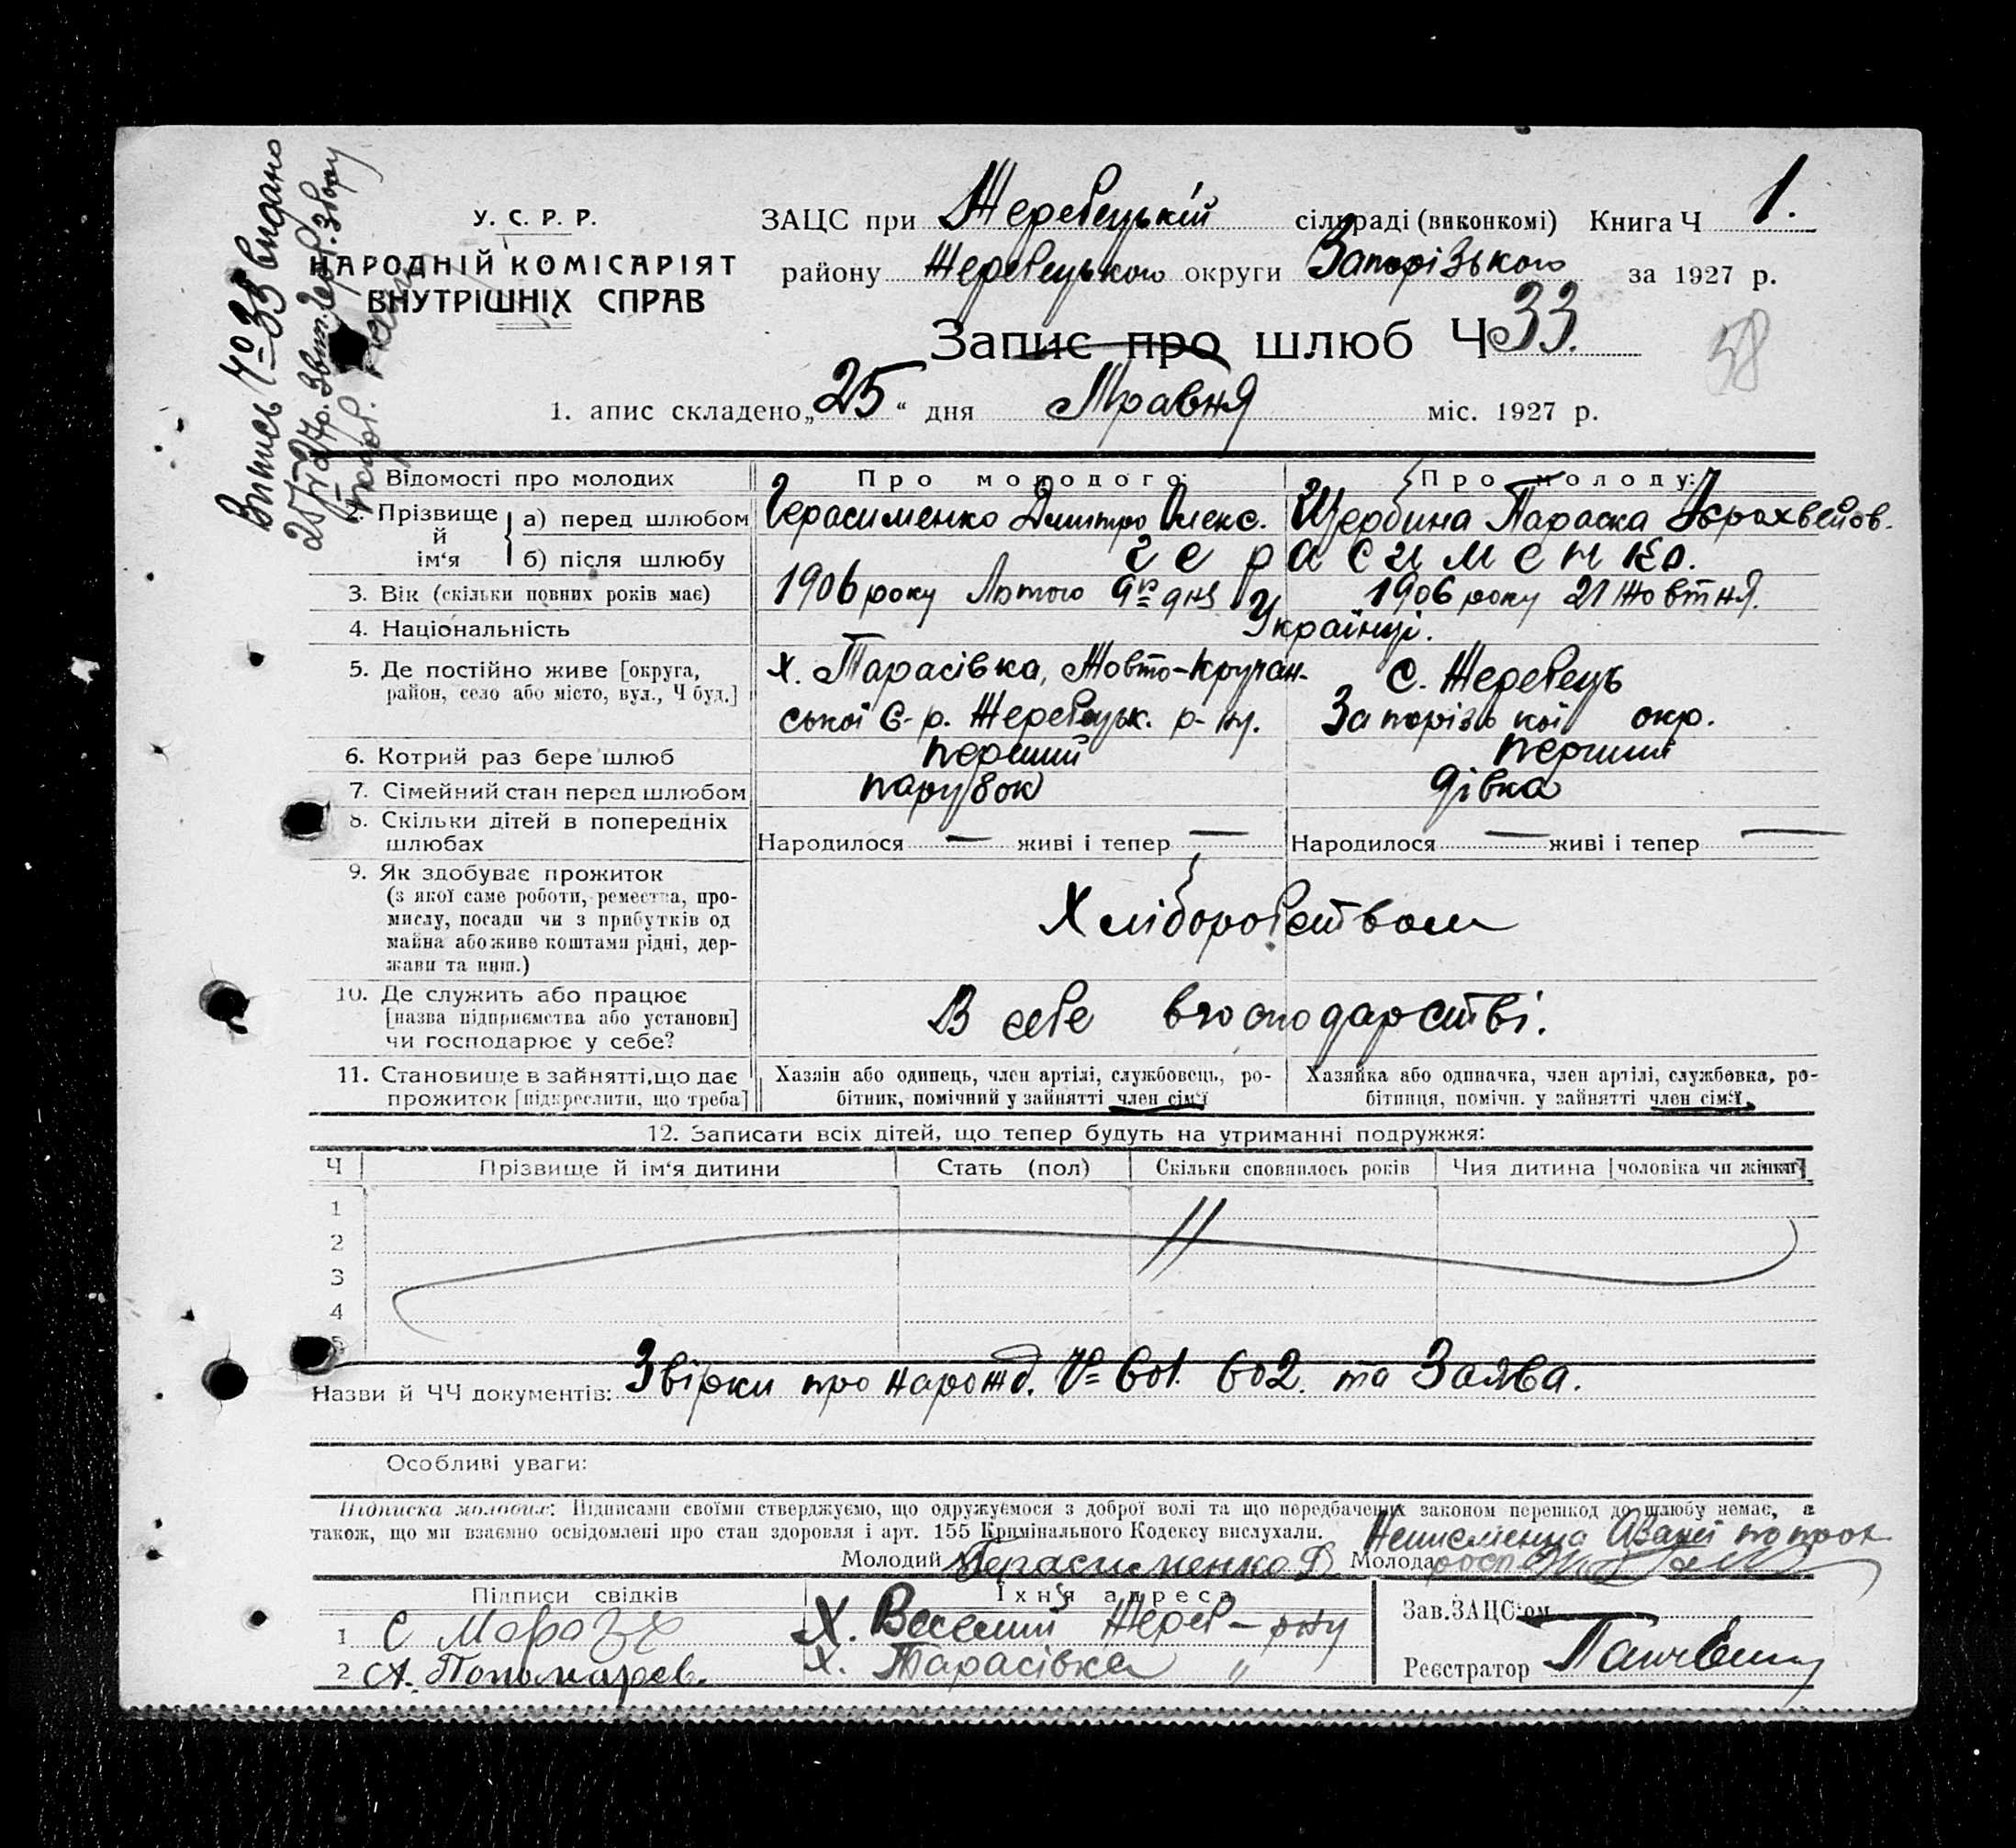 Витись № 33 видано
25/V 27р.
У. С. Р. Р.
НАРОДНІЙ КОМІСАРІЯТ
ВНУТРІШНІХ СПРАВ
ЗАЦС при Жеребецькій сільраді (виконкомі) Книга Ч 1.
району Жеребецького округи Запорізького за 1927 р.
Запис про шлюб Ч 33.
58
1. апис складено „25“ дня Травня міс. 1927 р.
Відомості про молодих Про молодого: Про молоду:
2. Прізвище й ім‘я а) перед шлюбом Герасименко Дмитро Олекс. Щербина Параска
б) після шлюбу Герасименко.
3. Вік (скільки повних років має) 1906 року Лютого 9го дня 1906 року 21 Жовтня.
4. Національність Українці.
5. Де постійно живе [округа, х. Тарасівка, Жовто-Круган- с. Жеребець
район, село або місто, вул., Ч буд.] ської С-р. Жеребецьк. р-ну. Запорізької окр.
6. Котрий раз бере шлюб перший перший
7. Сімейний стан перед шлюбом парубок дівка
8. Скільки дітей в попередніх
шлюбах Народилося — живі і тепер — Народилося — живі і тепер —
9. Як здобуває прожиток
(з якої саме роботи, ремества, про-
мислу, посади чи з прибутків од Хліборобством
майна або живе коштами рідні, дер-
жави та инш.)
10. Де служить або працює
[назва підприємства або установи] В себе вгосподарстві.
чи господарює у себе?
11. Становище в зайнятті, що дає Хазяїн або одинець, член артілі, службовець, ро- Хазяйка або одиначка, член артілі, службовка, ро-
прожиток [підкреслити, що треба] бітник, помічний у зайнятті член сім‘ї бітниця, помічн. у зайнятті член сім‘ї.
12. Записати всіх дітей, що тепер будуть на утриманні подружжя:
Ч Прізвище й ім‘я дитини Стать (пол) Скільки сповнилось років Чия дитина [чоловіка чи жінки]
1
2
3
4
5
Назви й ЧЧ документів: Звірки про нарожд. № 601. 602. та Заява.
Особливі уваги:
Підписка молодих: Підписами своїми стверджуємо, що одружуємося з доброї волі та що передбачених законом перешкод до шлюбу немає, а
також, що ми взаємно освідомлені про стан здоровля і арт. 155 Кримінального Кодексу вислухали.
Молодий Герасименко Д Молода
Підписи свідків Їхня адреса
1 С Мороз х. Веселий Жереб-рну Зав. ЗАЦС‘ом
2 А. Пономарев. х. Тарасівка „ Реєстратор